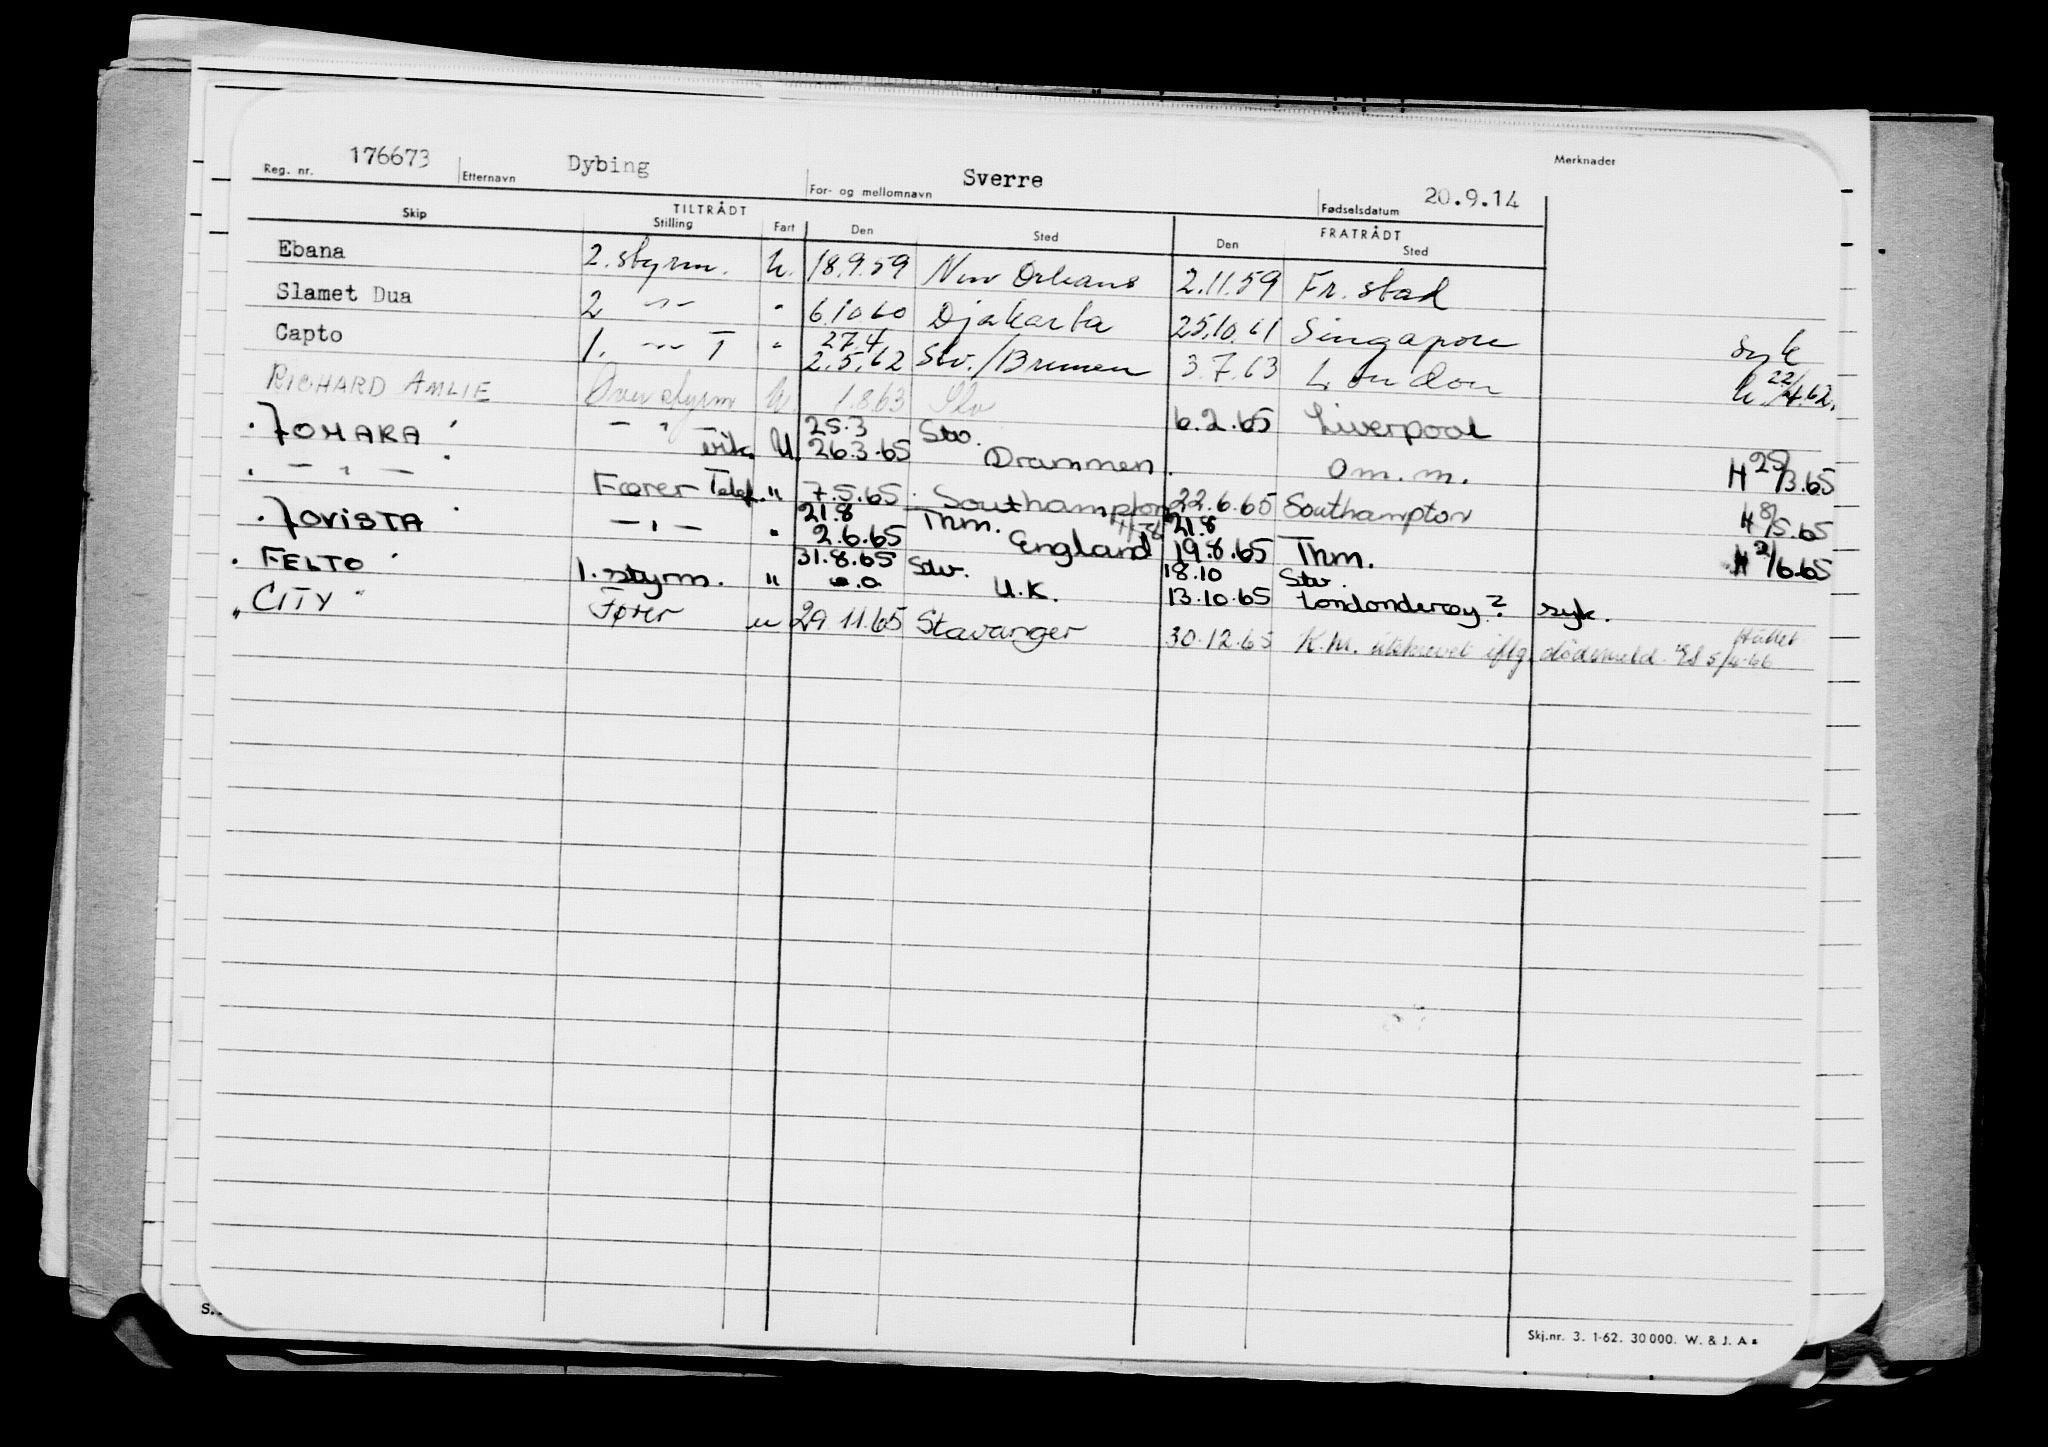 Reg. nr. 176673 Etternavn Dybing For- og mellomnavn Sverre Fødselsdatum 20.9.14 Merknader
TILTRÅDT FRATRÅDT
Skip Stilling Fart Den Sted Den Sted
Ebana 2. styrm. U. 18.9.59 New Orleans 2.11.59 Fr. stad
Slamet Dua 2 -"- " 6.10 60 Djakarta 25.10.61 Singapore syk
Capto 1. -"- T " 27.4 2.5.62 Stv./Bremen 3.7.63 London h. 22/4.62.
RICHARD AMLIE Overstyrm U. 1.8.63 Stv 6.2.65 Liverpool
"JOMARA" - " - vik. U. 25.3 26.3.65 Stv. Drammen. om.m. H 25/3.65
" - " - Fører Telef. " 7.5.65 Southampton 22.6.65 Southampton H 8/5.65
"JOVISTA" - " - " 21.8 2.6.65 Thm. England 21.8 19.8.65 Thm. H 2/6.65
"FELTO" 1. styrm. " 31.8.65 Stv. U.K. 18.10 13.10.65 Stv. Londonderry? syk.
"CITY" Fører u 29.11.65 Stavanger 30.12.65 K.M. utskrevet iflg. dödsmeld. 5/4-66
Skj.nr. 3. 1-62. 30 000. W. & J. A s
S.